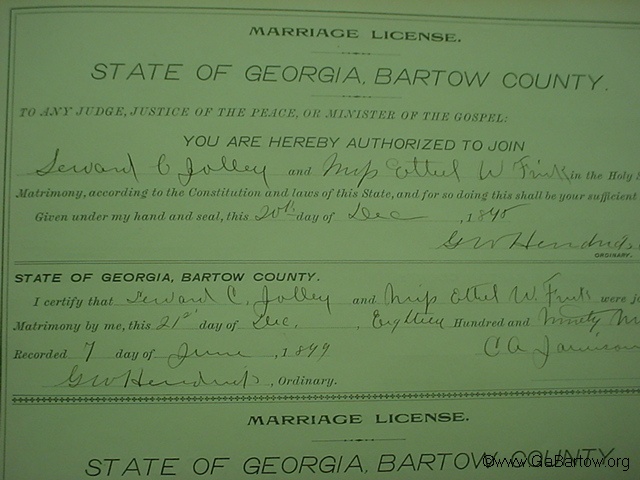 MARRIAGE LICENSE.
STATE OF GEORGIA, BARTOW COUNTY.
TO ANY JUDGE, JUSTICE OF THE PEACE, OR MINISTER OF THE GOSPEL:
YOU ARE HEREBY AUTHORIZED TO JOIN
Seward C Jolley and Miss Ethel W. Frink in the Holy
Matrimony, according to the Constitution and laws of this State, and for so doing this shall be your sufficient
Given under my hand and seal, this 20th day of Dec , 189
G W Hendricks
ORDINARY.
STATE OF GEORGIA, BARTOW COUNTY.
I certify that Seward C. Jolley and Miss Ethel W. Frink were
Matrimony by me, this 21st day of Dec. , Eighteen Hundred and Ninety
Recorded 7 day of June , 1899 C A Jamison
G W Hendricks , Ordinary.
MARRIAGE LICENSE.
STATE OF GEORGIA, BARTOW COUNTY.
©www.GaBartow.org